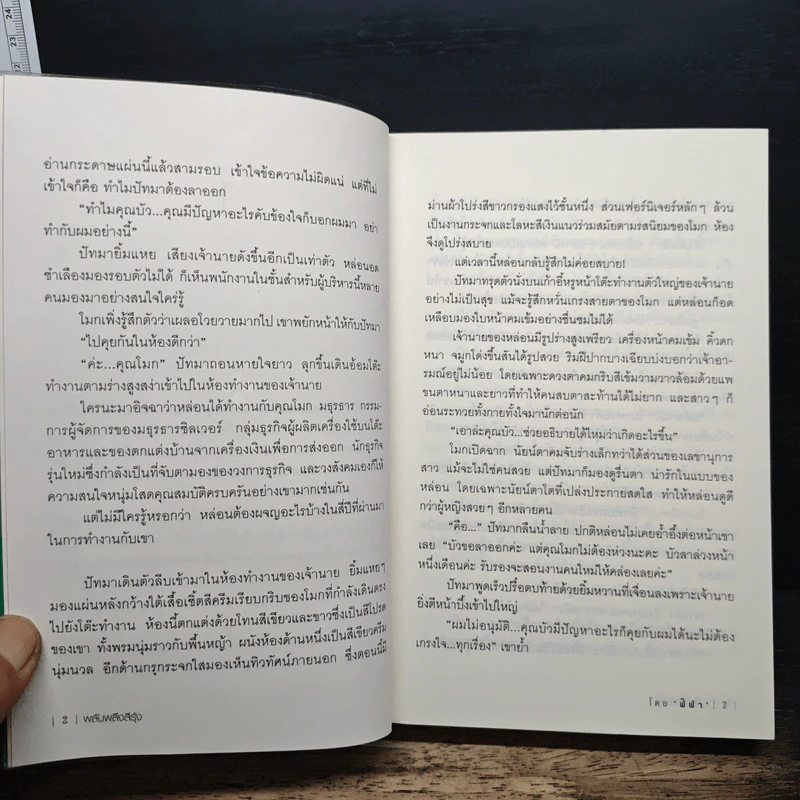 อ่านกระดาษแผ่นนี้แล้วสามรอบ เข้าใจข้อความไม่ผิดแน่ แต่ที่ไม่
เข้าใจก็คือ ทำไมปัทมาต้องลาออก
“ทำไมคุณบัว...คุณมีปัญหาอะไรคับข้องใจก็บอกผมมา อย่า
ทำกับผมอย่างนี้”
ปัทมายิ้มแหย เสียงเจ้านายดังขึ้นอีกเป็นเท่าตัว หล่อนอด
ชำเลืองมองรอบตัวไม่ได้ ก็เห็นพนักงานในชั้นสำหรับผู้บริหารนี้หลาย
คนมองมาอย่างสนใจใคร่รู้
โมกเพิ่งรู้สึกตัวว่าเผลอโวยวายมากไป เขาพยักหน้าให้กับปัทมา
“ไปคุยกันในห้องดีกว่า”
“ค่ะ...คุณโมก” ปัทมาถอนหายใจยาว ลุกขึ้นเดินอ้อมโต๊ะ
ทำงานตามร่างสูงสง่าเข้าไปในห้องทำงานของเจ้านาย
ใครนะมาอิจฉาว่าหล่อนได้ทำงานกับคุณโมก มธุรธาร กรรม-
การผู้จัดการของมธุรธารซิลเวอร์ กลุ่มธุรกิจผู้ผลิตเครื่องใช้บนโต๊ะ
อาหารและของตกแต่งบ้านจากเครื่องเงินเพื่อการส่งออก นักธุรกิจ
รุ่นใหม่ซึ่งกำลังเป็นที่จับตามองของวงการธุรกิจ และวงสังคมเองก็ให้
ความสนใจหนุ่มโสดคุณสมบัติครบครันอย่างเขามากเช่นกัน
แต่ไม่มีใครรู้หรอกว่า หล่อนต้องผจญอะไรบ้างในสี่ปีที่ผ่านมา
ในการทำงานกับเขา
ปัทมาเดินตัวลีบเข้ามาในห้องทำงานของเจ้านาย ยิ้มแหยๆ
มองแผ่นหลังกว้างใต้เสื้อเชิ้ตสีครีมเรียบกริบของโมกที่กำลังเดินตรง
ไปยังโต๊ะทำงาน ห้องนี้ตกแต่งด้วยโทนสีเขียวและขาวซึ่งเป็นสีโปรด
ของเขา ทั้งพรมนุ่มราวกับพื้นหญ้า ผนังห้องด้านหนึ่งเป็นสีเขียวครีม
นุ่มนวล อีกด้านกรุกระจกใสมองเห็นทิวทัศน์ภายนอก ซึ่งตอนนี้มี
| 2 | พลับพลึงสีรุ้ง
ม่านผ้าโปร่งสีขาวกรองแสงไว้ชั้นหนึ่ง ส่วนเฟอร์นิเจอร์หลักๆ ล้วน
เป็นงานกระจกและโลหะสีเงินแนวร่วมสมัยตามรสนิยมของโมก ห้อง
จึงดูโปร่งสบาย
แต่เวลานี้หล่อนกลับรู้สึกไม่ค่อยสบาย!
ปัทมาทรุดตัวนั่งบนเก้าอี้หรูหน้าโต๊ะทำงานตัวใหญ่ของเจ้านาย
อย่างไม่เป็นสุข แม้จะรู้สึกหวั่นเกรงสายตาของโมก แต่หล่อนก็อด
เหลือบมองใบหน้าคมเข้มอย่างชื่นชมไม่ได้
เจ้านายของหล่อนมีรูปร่างสูงเพรียว เครื่องหน้าคมเข้ม คิ้วดก
หนา จมูกโด่งขึ้นสันได้รูปสวย ริมฝีปากบางเฉียบบ่งบอกว่าเจ้าอา-
รมณ์อยู่ไม่น้อย โดยเฉพาะดวงตาคมกริบสีเข้มวามวาวล้อมด้วยแพ
ขนตาหนาและยาวที่ทำให้คนสบตาสะท้านได้ไม่ยาก และสาวๆ ก็
อ่อนระทวยทั้งกายทั้งใจมานักต่อนัก
“เอาล่ะคุณบัว...ช่วยอธิบายได้ไหมว่าเกิดอะไรขึ้น”
โมกเปิดฉาก นัยน์ตาคมจับร่างเล็กกว่าได้ส่วนของเลขานุการ
สาว แม้จะไม่ใช่คนสวย แต่ปัทมาก็มองดูรื่นตา น่ารักในแบบของ
หล่อน โดยเฉพาะนัยน์ตาโตที่เปล่งประกายสดใส ทำให้หล่อนดูดี
กว่าผู้หญิงสวยๆ อีกหลายคน
“คือ...” ปัทมากลืนน้ำลาย ปกติหล่อนไม่เคยอ้ำอึ้งต่อหน้าเขา
เลย “บัวขอลาออกค่ะ แต่คุณโมกไม่ต้องห่วงนะคะ บัวลาล่วงหน้า
หนึ่งเดือนค่ะ รับรองจะสอนงานคนใหม่ให้คล่องเลยค่ะ”
ปัทมาพูดเร็วปรื๋อตบท้ายด้วยยิ้มหวานที่เจื่อนลงเพราะเจ้านาย
ยิ่งตีหน้าบึ้งเข้าไปใหญ่
“ผมไม่อนุมัติ...คุณบัวมีปัญหาอะไรก็คุยกับผมได้นะไม่ต้อง
เกรงใจ...ทุกเรื่อง” เขาย้ำ
โดย ‘ฟีฟ่า’ | 3 |
24
23
22